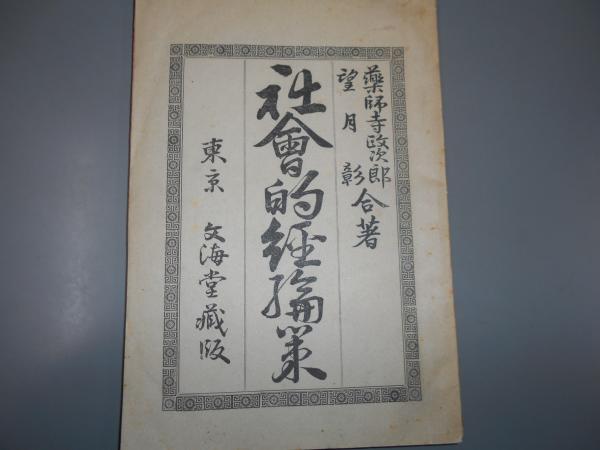 藥師寺政次郎
望月彰 合著
社會的經綸策
東京 文海堂藏版